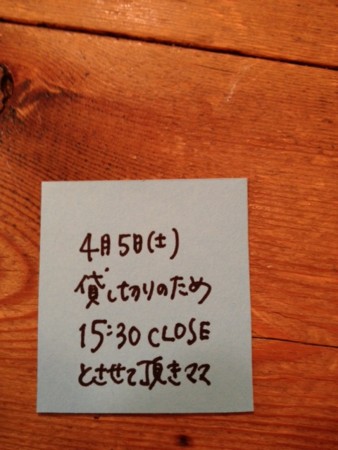 4月5日(土)
貸し切りのため
15:30 CLOSE
とさせて頂きママ